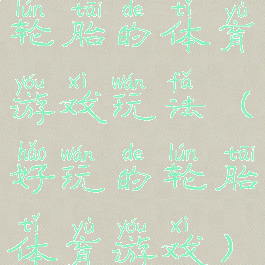 lún tāi de tǐ yù
轮胎的体育
yóu xì wán fǎ
游戏玩法（
hǎo wán de lún tāi
好玩的轮胎
tǐ yù yóu xì
体育游戏）